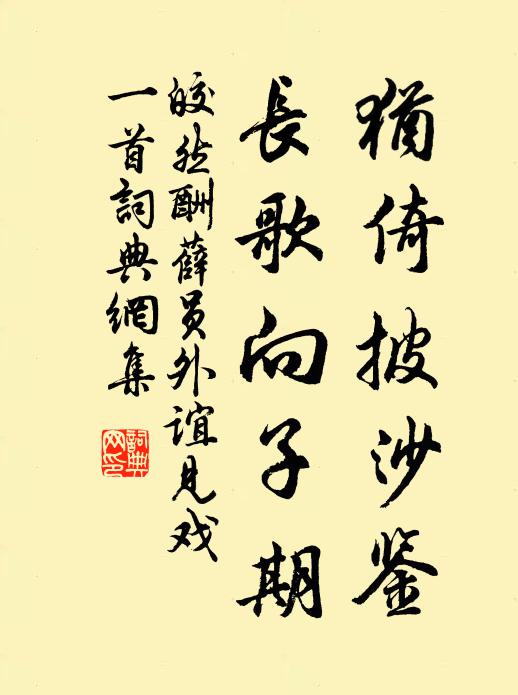 猶倚披沙鉴
長歌向子期
皎然酬薛员外谊見戏
一首詞典網集
詞典网印